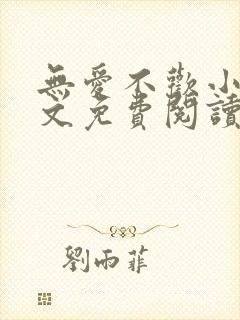 無愛不歡小
文免費閱讀
劉雨菲